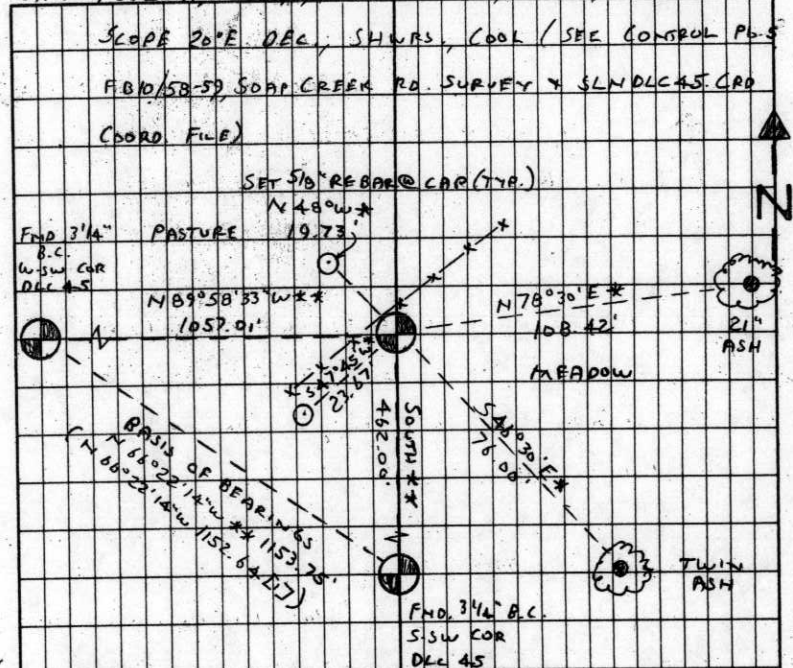 SCOPE 20°E DEC., SHWRS, COOL (SEE CONTROL PG. 5
FB10/58-59, SOAP CREEK RD. SURVEY & SLNDLC45.CRD
COORD. FILE)
SET 5/8" REBAR @ CAP (TYP.)
N 48° W *
19.73'
FND 3 1/4"
B.C.
W-SW COR
DLC 45
PASTURE
N
N 89°58'33" W **
1057.01'
N 78°30' E *
108.42'
21"
ASH
MEADOW
23.67'
SOUTH **
462.00'
S 46°30' E *
76.00'
BASIS OF BEARINGS
N 66°22'14" W ** 1153.75'
(N 66°22'14" W 1152.64 [17])
TWIN
ASH
FND. 3 1/4" B.C.
S-SW COR
DLC 45